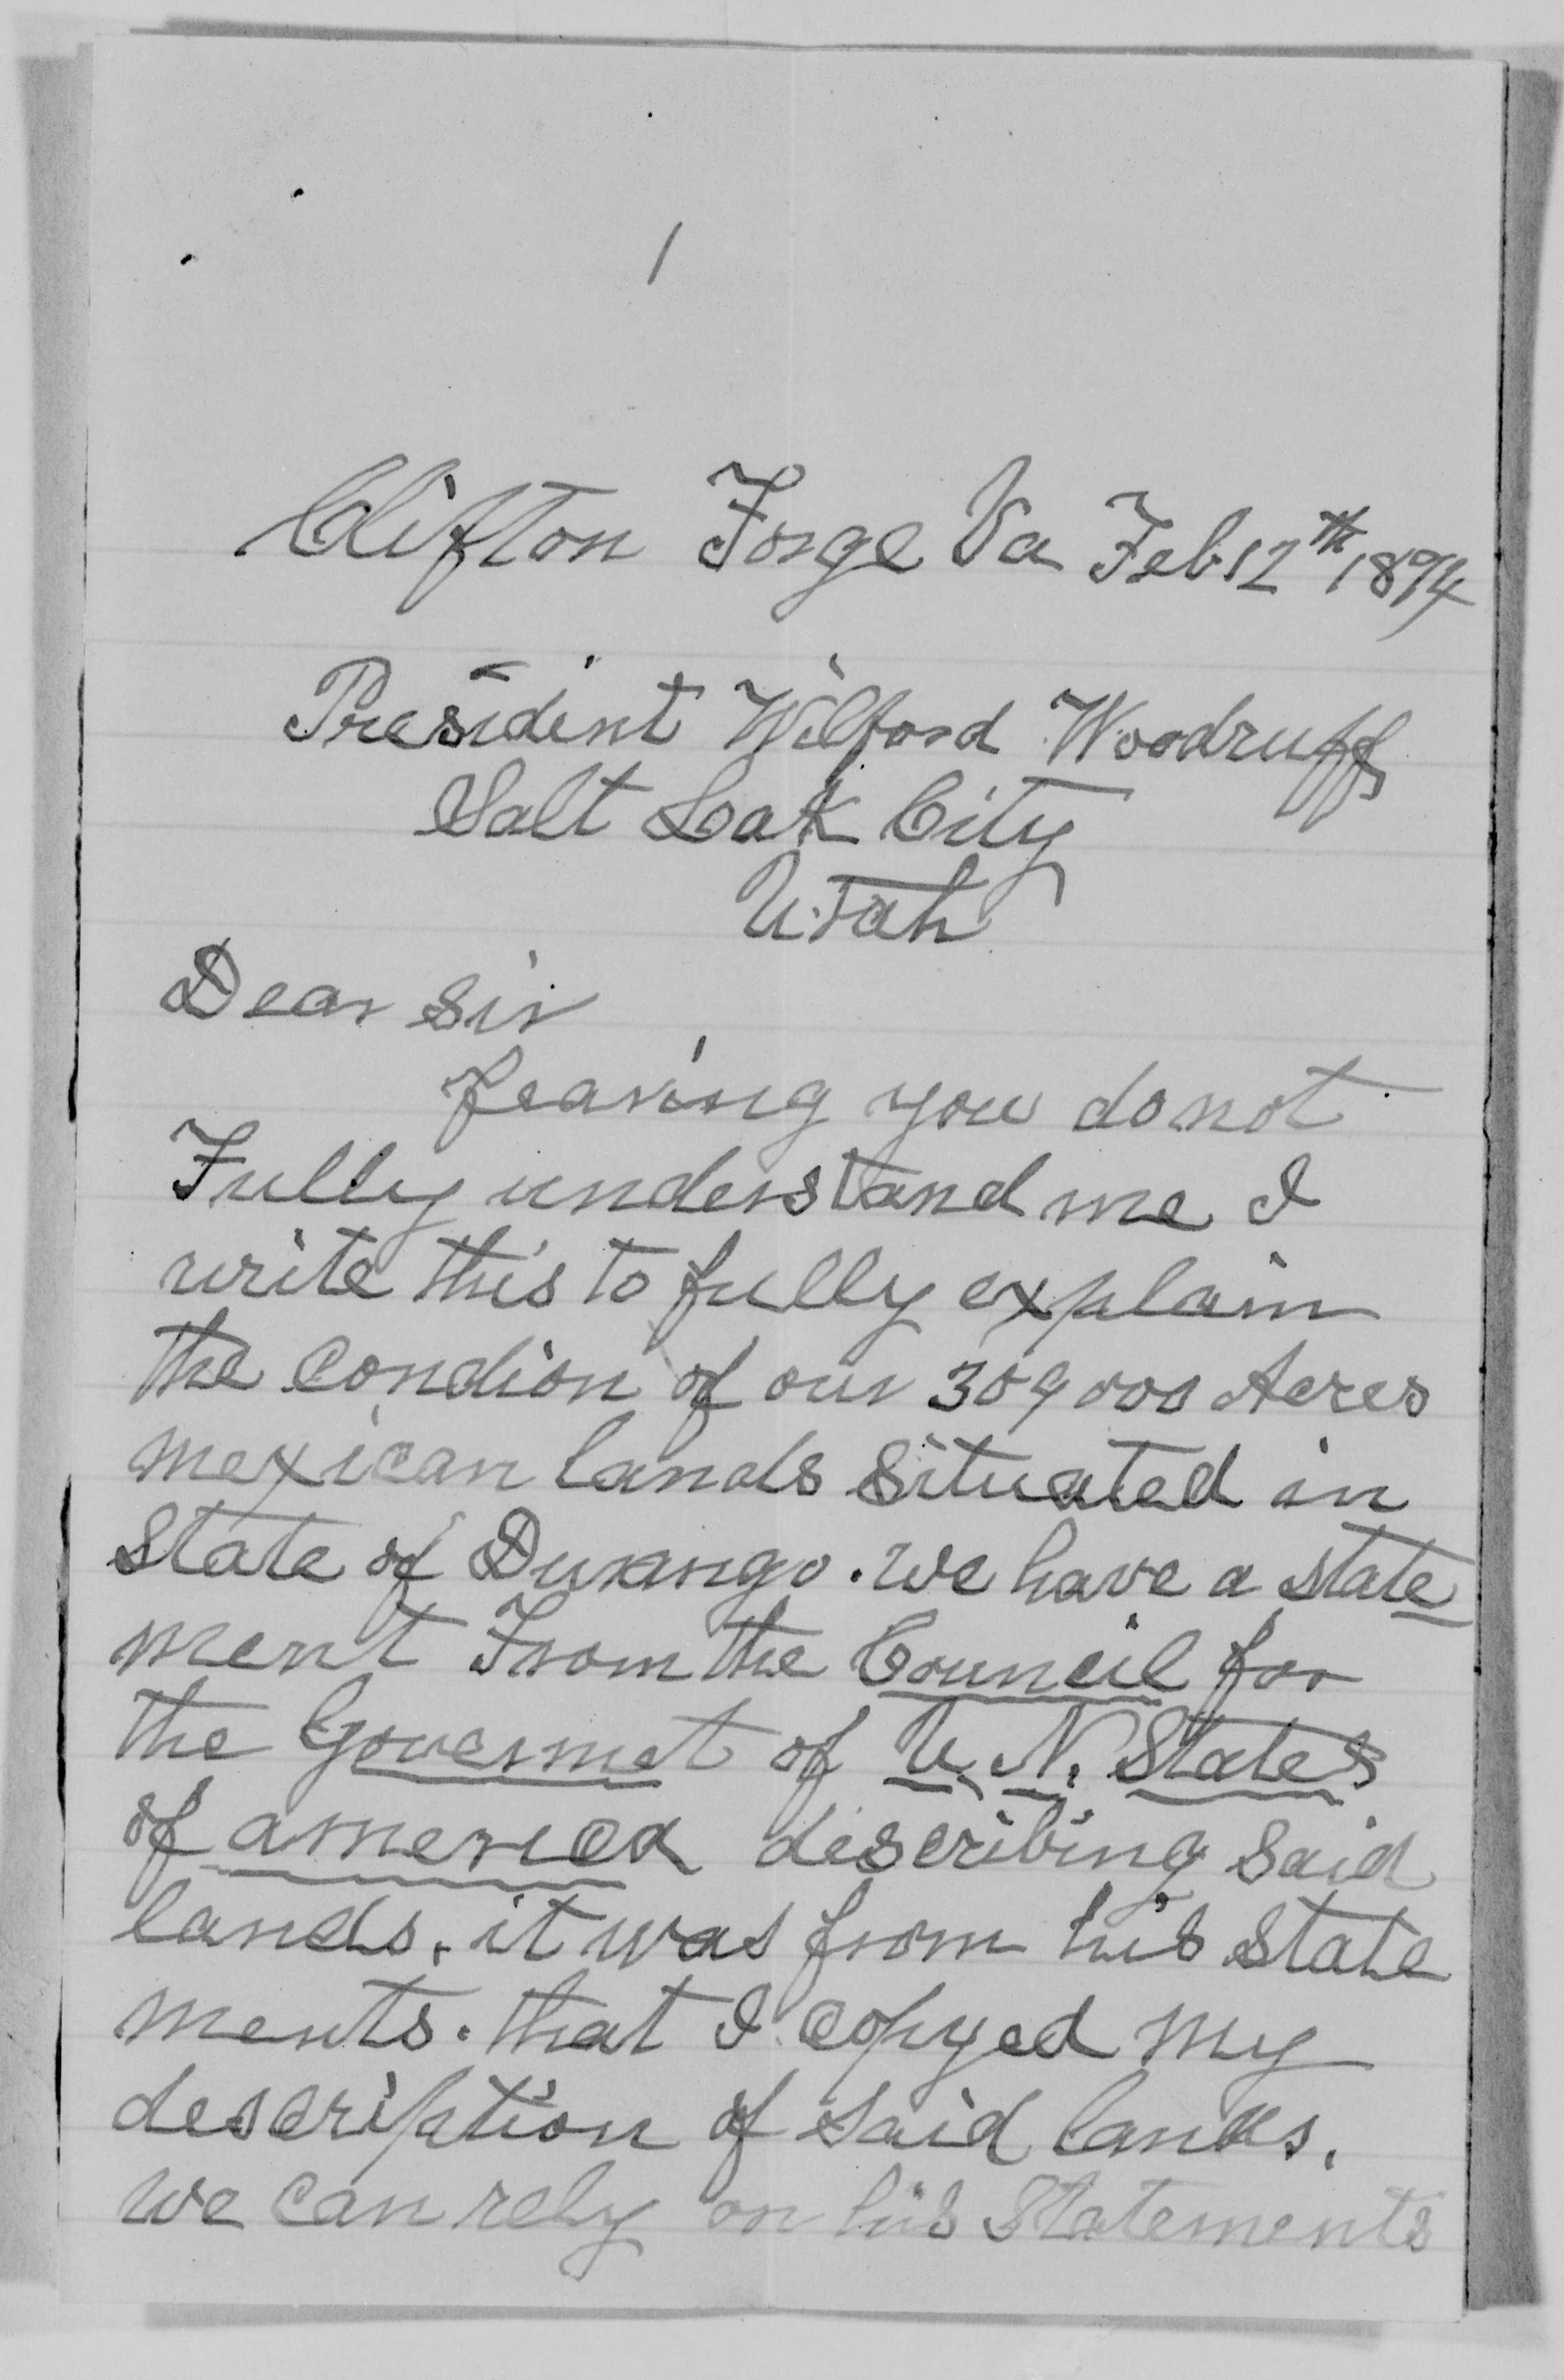 1
Clifton Forge Va Feb 12th 1894
President Wilford Woodruff
Salt Leak City
Utah
Dear Sir
fearing you do not
Fully understand me I
write this to fully explain
the condion of our 309000 Acres
mexican lands situated in
State of Durango. we have a state
ment From the Council for
the Governmet of U. N. States
of america describing said
lands. it was from his state
ments. that I copyed my
description of said lands.
we can rely on his statements